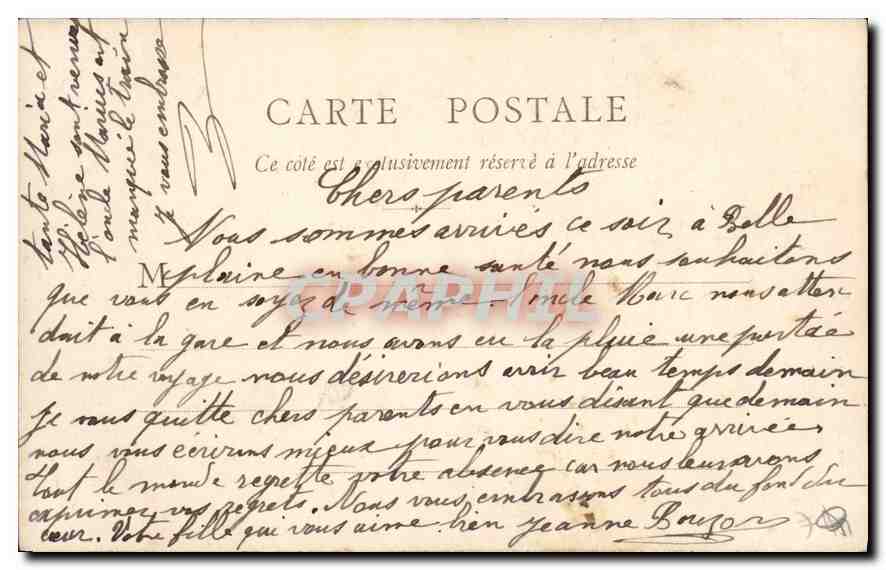 CARTE POSTALE
Ce côté est exclusivement réservé à l'adresse
Chers parents
Nous sommes arrivés ce soir à Belle
M
plaine en bonne santé nous souhaitons
que vous en soyez de même. l'oncle Marc nous atten
dait à la gare et nous avons eu la pluie une partie
de notre voyage nous désirerions avoir beau temps demain
je vous quitte chers parents en vous disant que demain
nous vous écrirons mieux pour vous dire notre arrivée,
tout le monde regrette votre absence car nous leur avons
exprimer vos regrets. Nous vous embrassons tous du fond du
cœur. Votre fille qui vous aime bien Jeanne
tante Maria et
Hélène sont venues
l'oncle Marius ont
manqué le train
Je vous embrasse
CPAPHIL